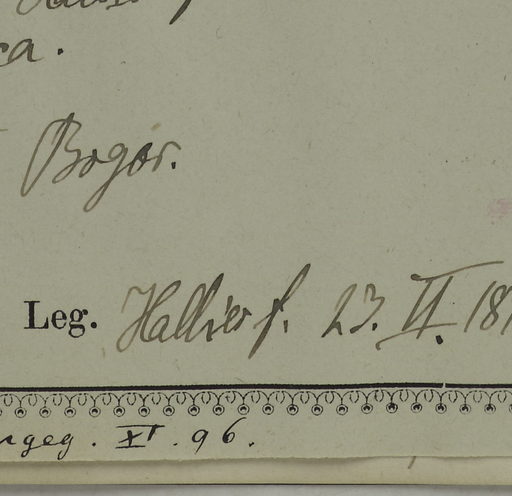 Bogor.
Leg. Hallier f. 23. II. 18
geg. XI. 96.